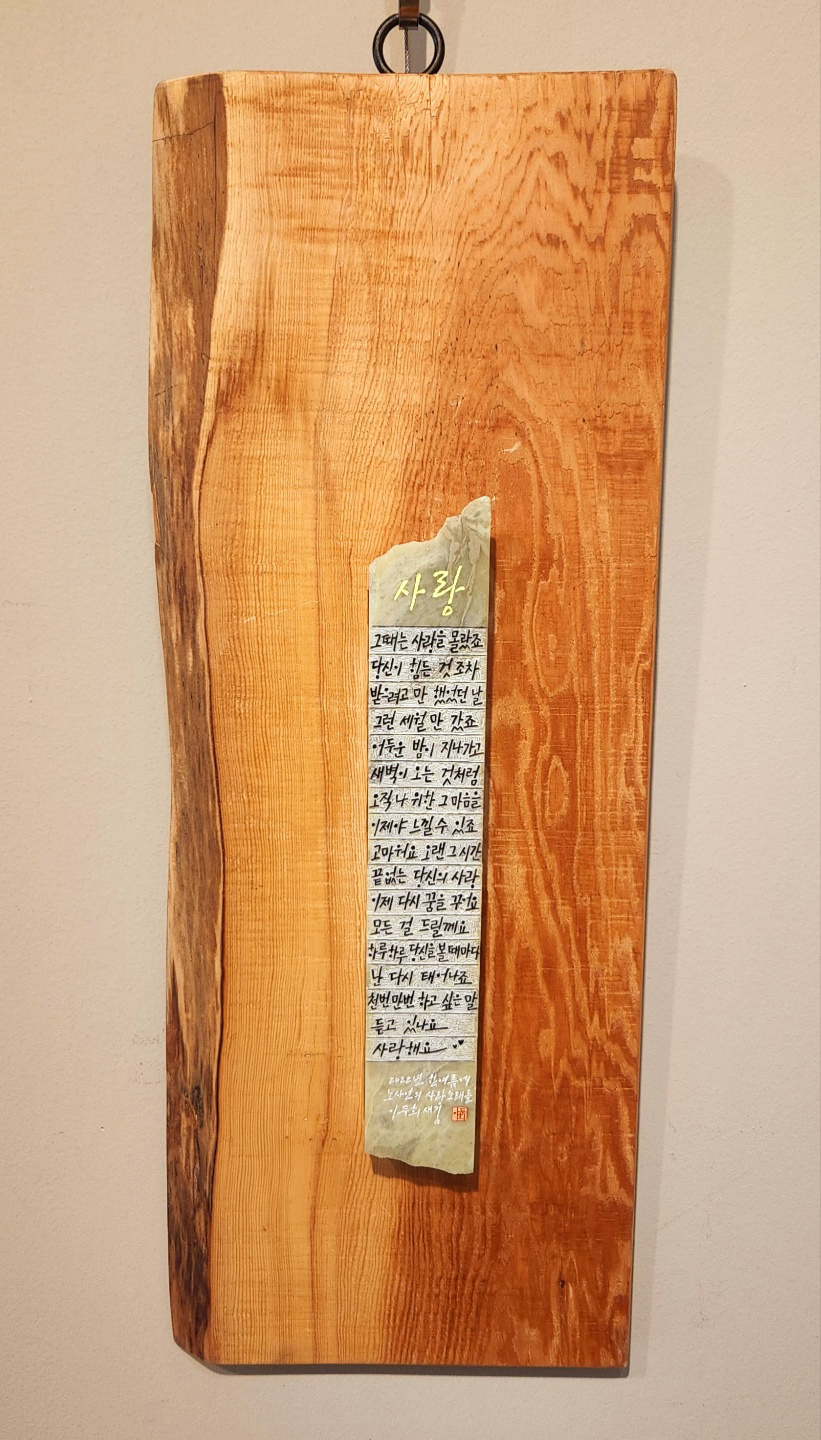 사랑
그때는 사랑을 몰랐죠
당신이 힘든 것조차
받으려고만 했었던 날
그런 세월만 갔죠
어두운 밤이 지나가고
새벽이 오는 것처럼
오직 나 위한 그 마음을
이제야 느낄 수 있죠
고마워요 오랜 그 시간
끝없는 당신의 사랑
이제 다시 꿈을 꾸어요
모든 걸 드릴께요
하루하루 당신을 볼 때마다
난 다시 태어나죠
천번만번 하고 싶은 말
듣고 있나요
사랑해요
2022년 한여름에
노사연의 사랑 노래를
새김